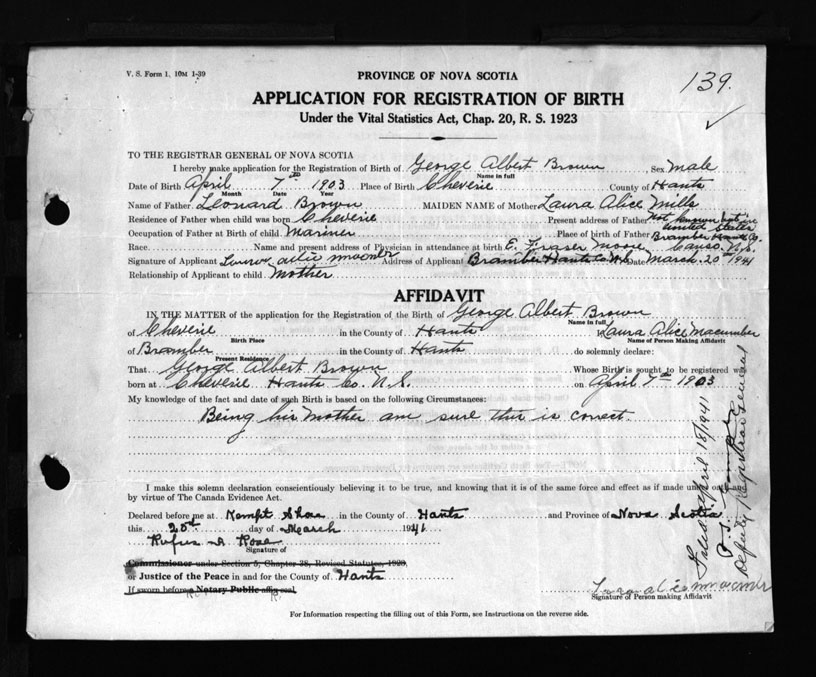 V. S. Form 1, 10M 1-39
PROVINCE OF NOVA SCOTIA
139.
APPLICATION FOR REGISTRATION OF BIRTH
Under the Vital Statistics Act, Chap. 20, R. S. 1923
TO THE REGISTRAR GENERAL OF NOVA SCOTIA
I hereby make application for the Registration of Birth of George Albert Brown, Sex Male
Name in full
Date of Birth April 7th 1903 Place of Birth Cheverie County of Hants
Month Date Year
Name of Father Leonard Brown MAIDEN NAME of Mother Laura Alice Mills
Residence of Father when child was born Cheverie Present address of Father Not known but in United States
Occupation of Father at Birth of child Mariner Place of birth of Father Bramber Hants Co.
Race Name and present address of Physician in attendance at birth E. Fraser Moore, Canso, N.S.
Signature of Applicant Laura alice macomber Address of Applicant Bramber Hants Co N.S. Date March. 20th 1941
Relationship of Applicant to child Mother
AFFIDAVIT
IN THE MATTER of the application for the Registration of the Birth of George Albert Brown
Name in full
of Cheverie in the County of Hants I, Laura Alice Macumber
Birth Place Name of Person Making Affidavit
of Bramber in the County of Hants do solemnly declare:
Present Residence
That George Albert Brown Whose Birth is sought to be registered was
born at Cheverie Hants Co. N.S. on April 7th 1903
My knowledge of the fact and date of such Birth is based on the following Circumstances:
Being his Mother am sure this is correct.
I make this solemn declaration conscientiously believing it to be true, and knowing that it is of the same force and effect as if made under oath and
by virtue of The Canada Evidence Act.
Declared before me at Kempt Shore in the County of Hants and Province of Nova Scotia
this 20th day of March 1941
Rufus A Rose
Signature of
Commissioner under Section 5, Chapter 38, Revised Statutes, 1923
or Justice of the Peace in and for the County of Hants
If sworn before a Notary Public affix seal
Laura alice macomber
Signature of Person making Affidavit
For Information respecting the filling out of this Form, see Instructions on the reverse side.
Filed April 18/1941
Deputy Registrar General